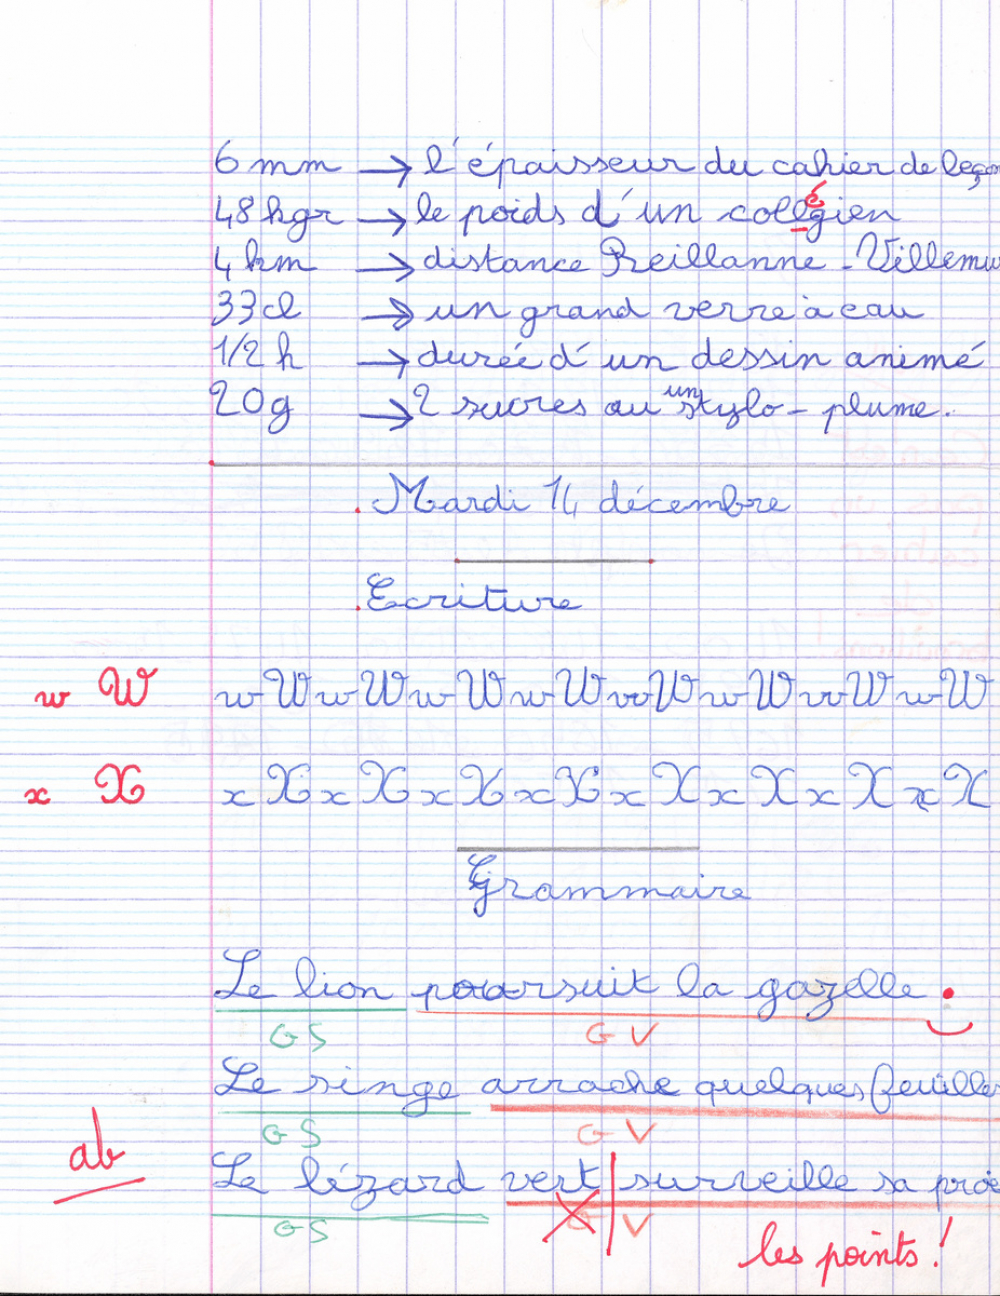 6 mm → l'épaisseur du cahier de leçon
48 kgr → le poids d'un collégien
4 km → distance Reillanne - Villemu
33 cl → un grand verre à eau
1/2 h → durée d'un dessin animé
20g → 2 sucres ou un stylo - plume.
Mardi 14 décembre
Ecriture
w W w W w W w W w W w W w W w W w W
x X x X x X x X x X x X x X x X x X
Grammaire
Le lion poursuit la gazelle.
GS GV
Le singe arrache quelques feuilles
GS GV
ab Le lézard vert | surveille sa proie
GS GV
les points !